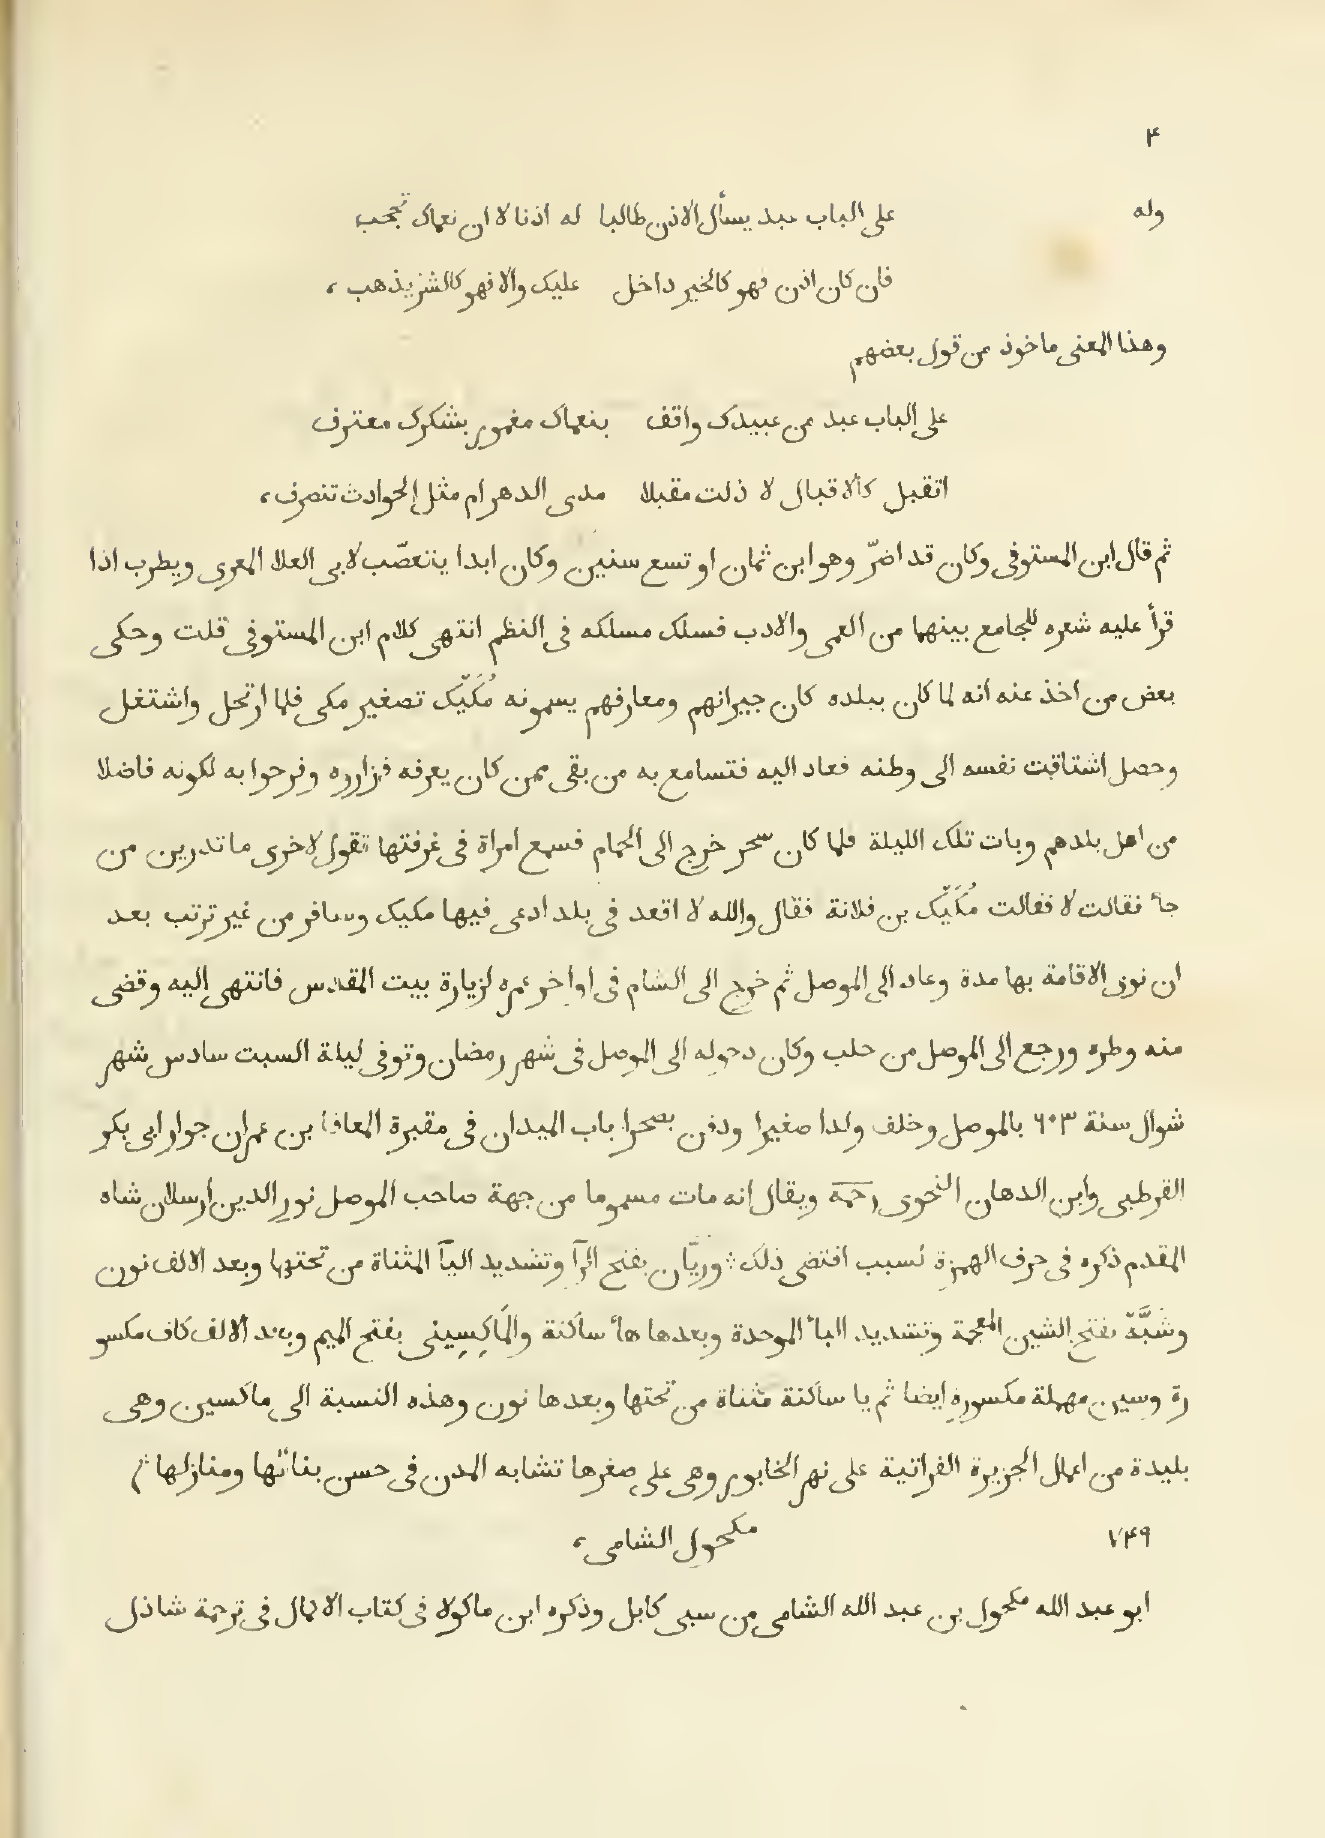 ۴
وله على الباب عبد يسأل الاذن طالبا له اذنا لا ان نعماك تحجب
فان كان اذن فهو كالخير داخل عليك والا فهو كالشر يذهب ،
وهذا المعنى ماخوذ من قول بعضهم
على الباب عبد من عبيدك واقف بنعماك مغمور بشكرك معترف
اتقبل كالاقبال لا ذلت مقبلا مدى الدهر ام مثل الحوادث تنصرف ،
ثم قال ابن المستوفى وكان قد اضرّ وهو ابن ثمان او تسع سنين وكان ابدا يتعصّب لابى العلا المعرى ويطرب اذا
قرأ عليه شعره للجامع بينهما من العمى والادب فسلك مسلكه فى النظم انتهى كلام ابن المستوفى قلت وحكى
بعض من اخذ عنه انه لما كان ببلده كان جيرانهم ومعارفهم يسمونه مُكَيّك تصغير مكى فلما ارتحل واشتغل
وحصل اشتاقت نفسه الى وطنه فعاد اليه فتسامع به من بقى ممن كان يعرفه فزاروه وفرحوا به لكونه فاضلا
من اهل بلدهم وبات تلك الليلة فلما كان سحر خرج الى الحمام فسمع امراة فى غرفتها تقول لاخرى ما تدرين من
جأ فقالت لا فقالت مُكَيّك بن فلانة فقال والله لا اقعد فى بلد ادعى فيها مكيك وسافر من غير ترتب بعد
ان نوى الاقامة بها مدة وعاد الى الموصل ثم خرج الى الشام فى اواخر عمره لزيارة بيت المقدس فانتهى اليه وقضى
منه وطره ورجع الى الموصل من حلب وكان دخوله الى الموصل فى شهر رمضان وتوفى ليلة السبت سادس شهر
شوال سنة ٦٠٣ بالموصل وخلف ولدا صغيرا ودفن بصحرا باب الميدان فى مقبرة المعافا بن عمران جوار ابى بكر
القرطبى وابن الدهان النحوى رحمه ويقال انه مات مسموما من جهة صاحب الموصل نور الدين ارسلان شاه
المقدم ذكره فى حرف الهمزة لسبب اقتضى ذلك ؛ وريّان بفتح الرآ وتشديد اليآ المثناة من تحتها وبعد الالف نون
وشبَّة بفتح الشين المعجمة وتشديد البأ الموحدة وبعدها هأ ساكنة والمَاكِسِينى بفتح الميم وبعد الالف كاف مكسو
رة وسين مهملة مكسورة ايضا ثم يا ساكنة مثناة من تحتها وبعدها نون وهذه النسبة الى ماكسين وهى
بليدة من اعمال الجزيرة الفراتية على نهر الخابور وهى على صغرها تشابه المدن فى حسن بنائها ومنازلها ثم
٧٤٩ مكحول الشامى ،
ابو عبد الله مكحول بن عبد الله الشامى من سبى كابل وذكره ابن ماكولا فى كتاب الاكمال فى ترجمة شاذل